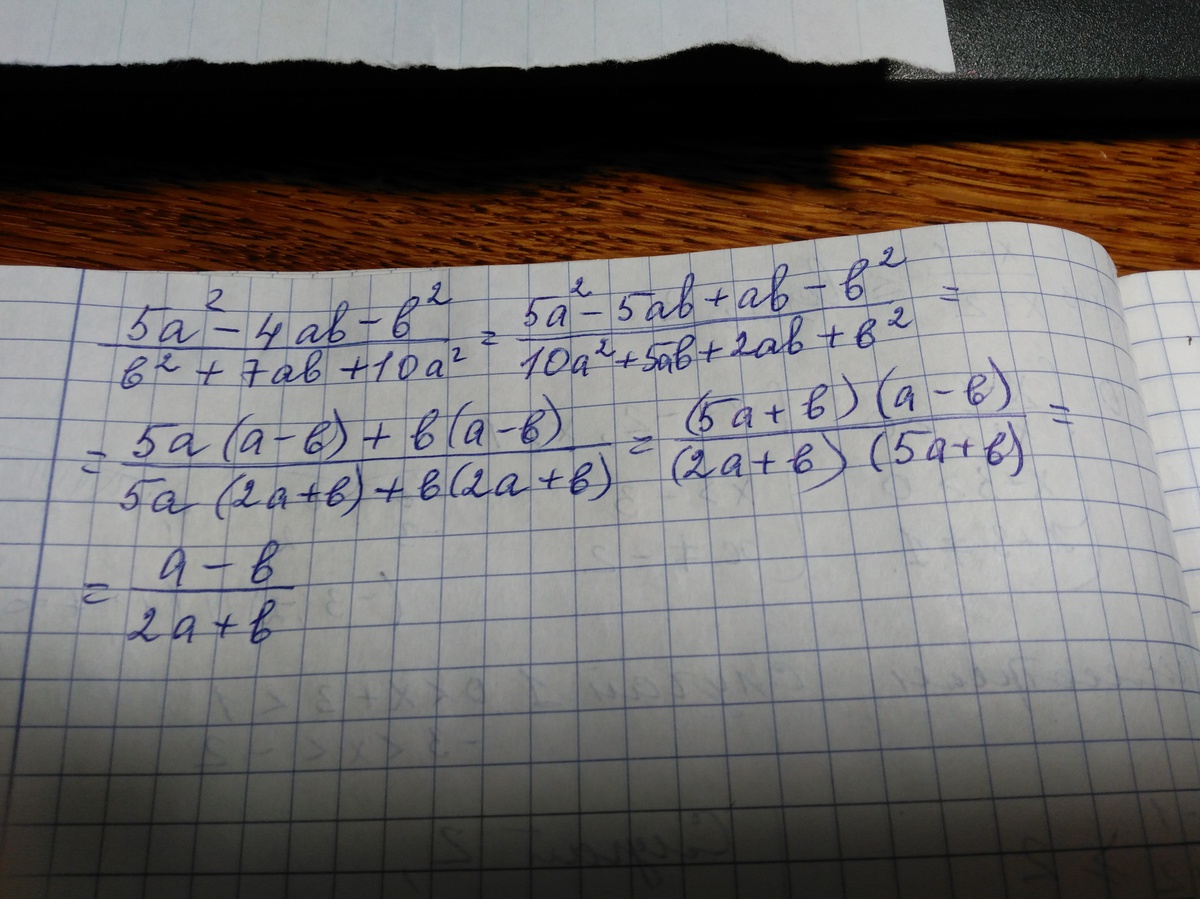 (5a² - 4ab - b²)/(b² + 7ab + 10a²) = (5a² - 5ab + ab - b²)/(10a² + 5ab + 2ab + b²) =
= (5a (a - b) + b (a - b))/(5a (2a + b) + b (2a + b)) = ((5a + b) (a - b))/((2a + b) (5a + b)) =
= (a - b)/(2a + b)